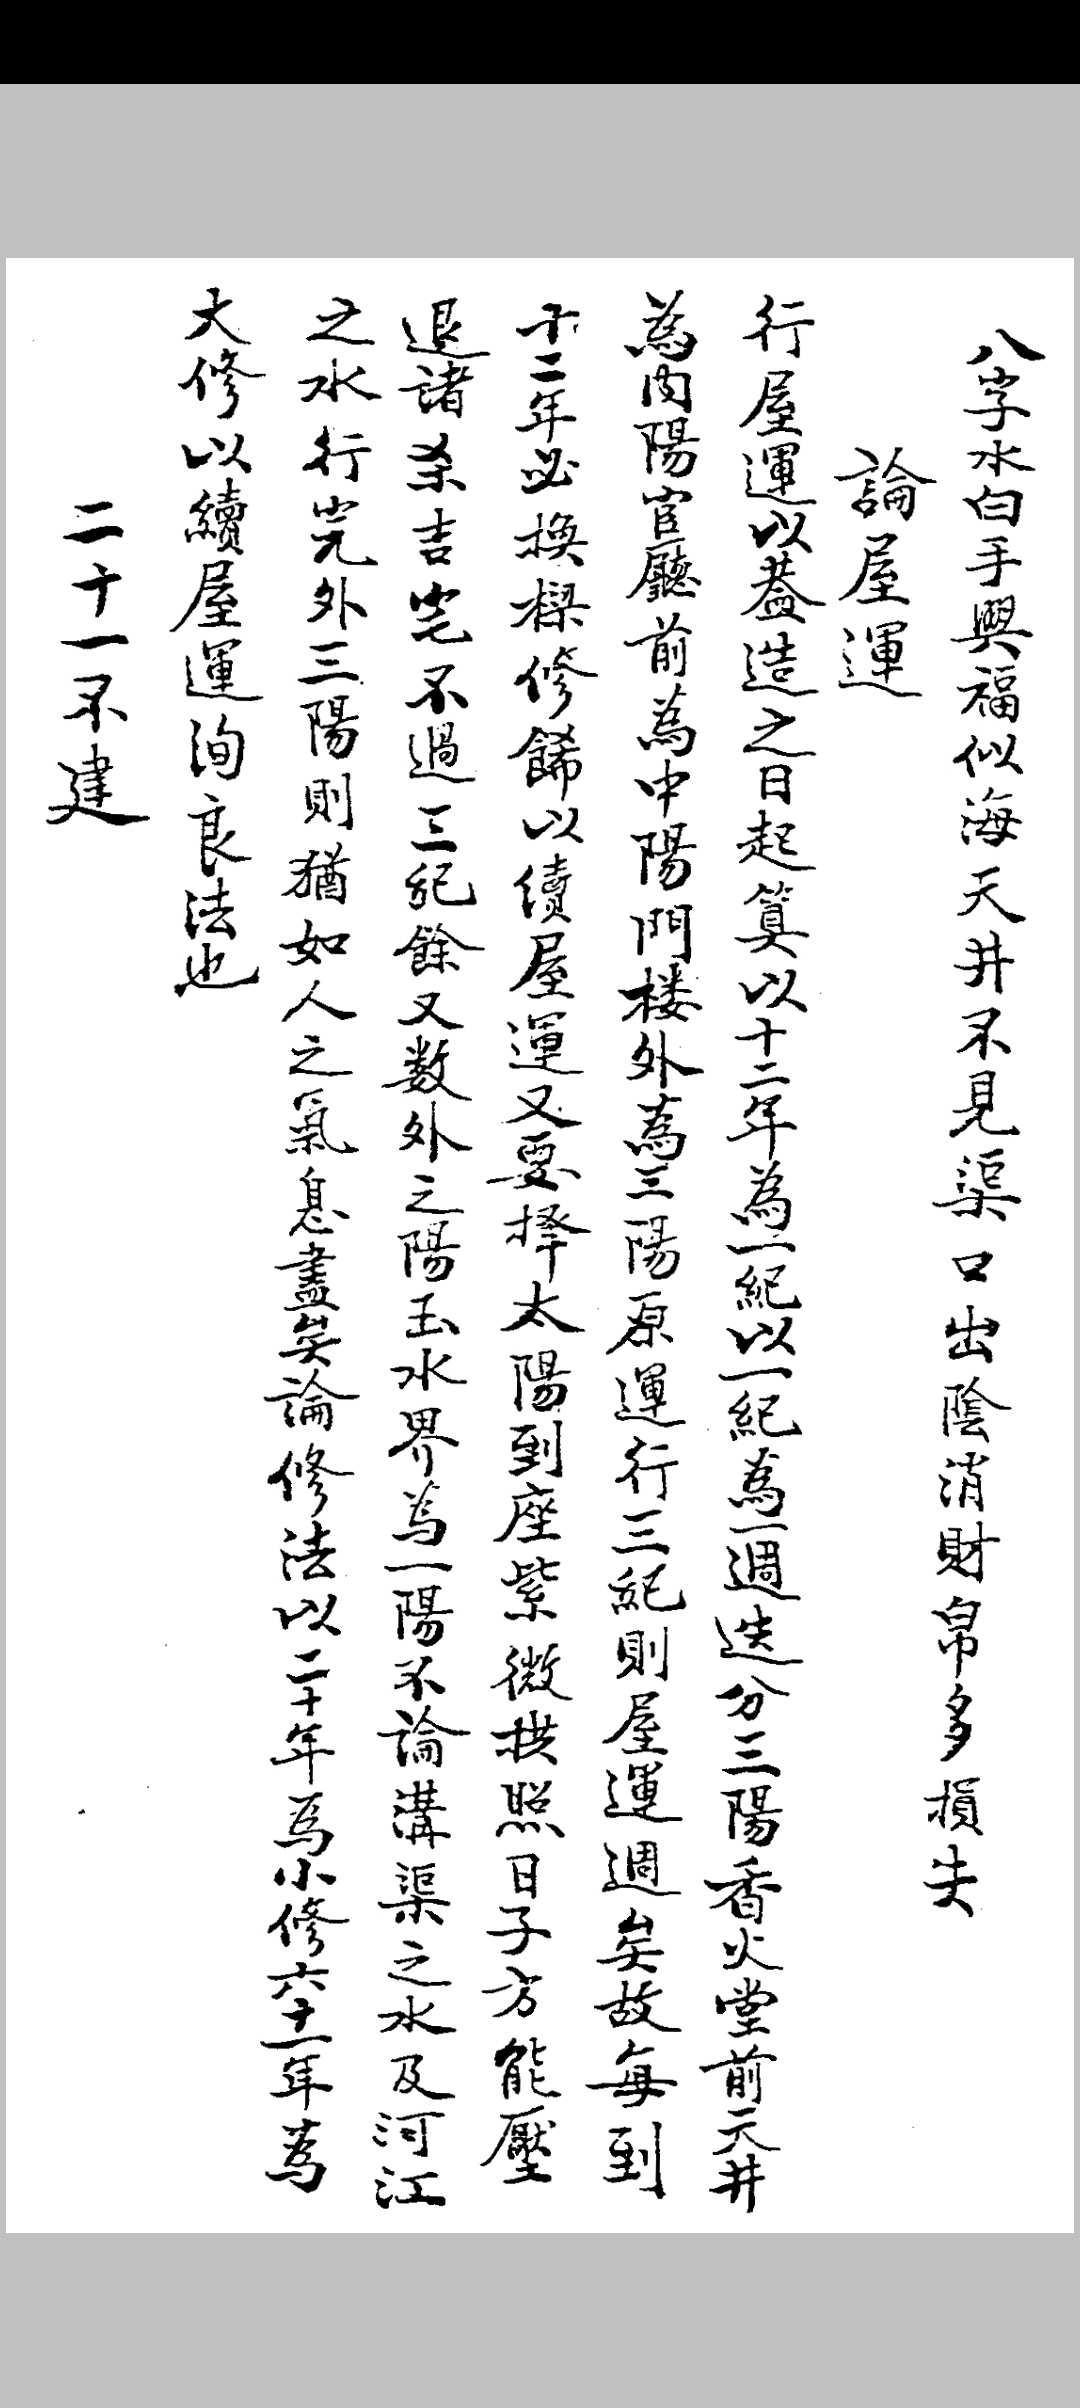 八字水白手興福似海天井不見渠口出陰消財帛多損失
論屋運
行屋運以葢造之日起算以十二年為一紀以一紀為一週迭分三陽香火堂前天井
為內陽官廳前為中陽門楼外為三陽原運行三紀則屋運週矣故每到
十二年必換樑修餙以續屋運又要擇太陽到座紫微拱照日子方能壓
退諸杀吉宅不過三紀餘又数外之陽玉水界為一陽不論溝渠之水及河江
之水行完外三陽則猶如人之氣息盡矣論修法以二十年為小修六十一年為
大修以續屋運洵良法也
二十一不建